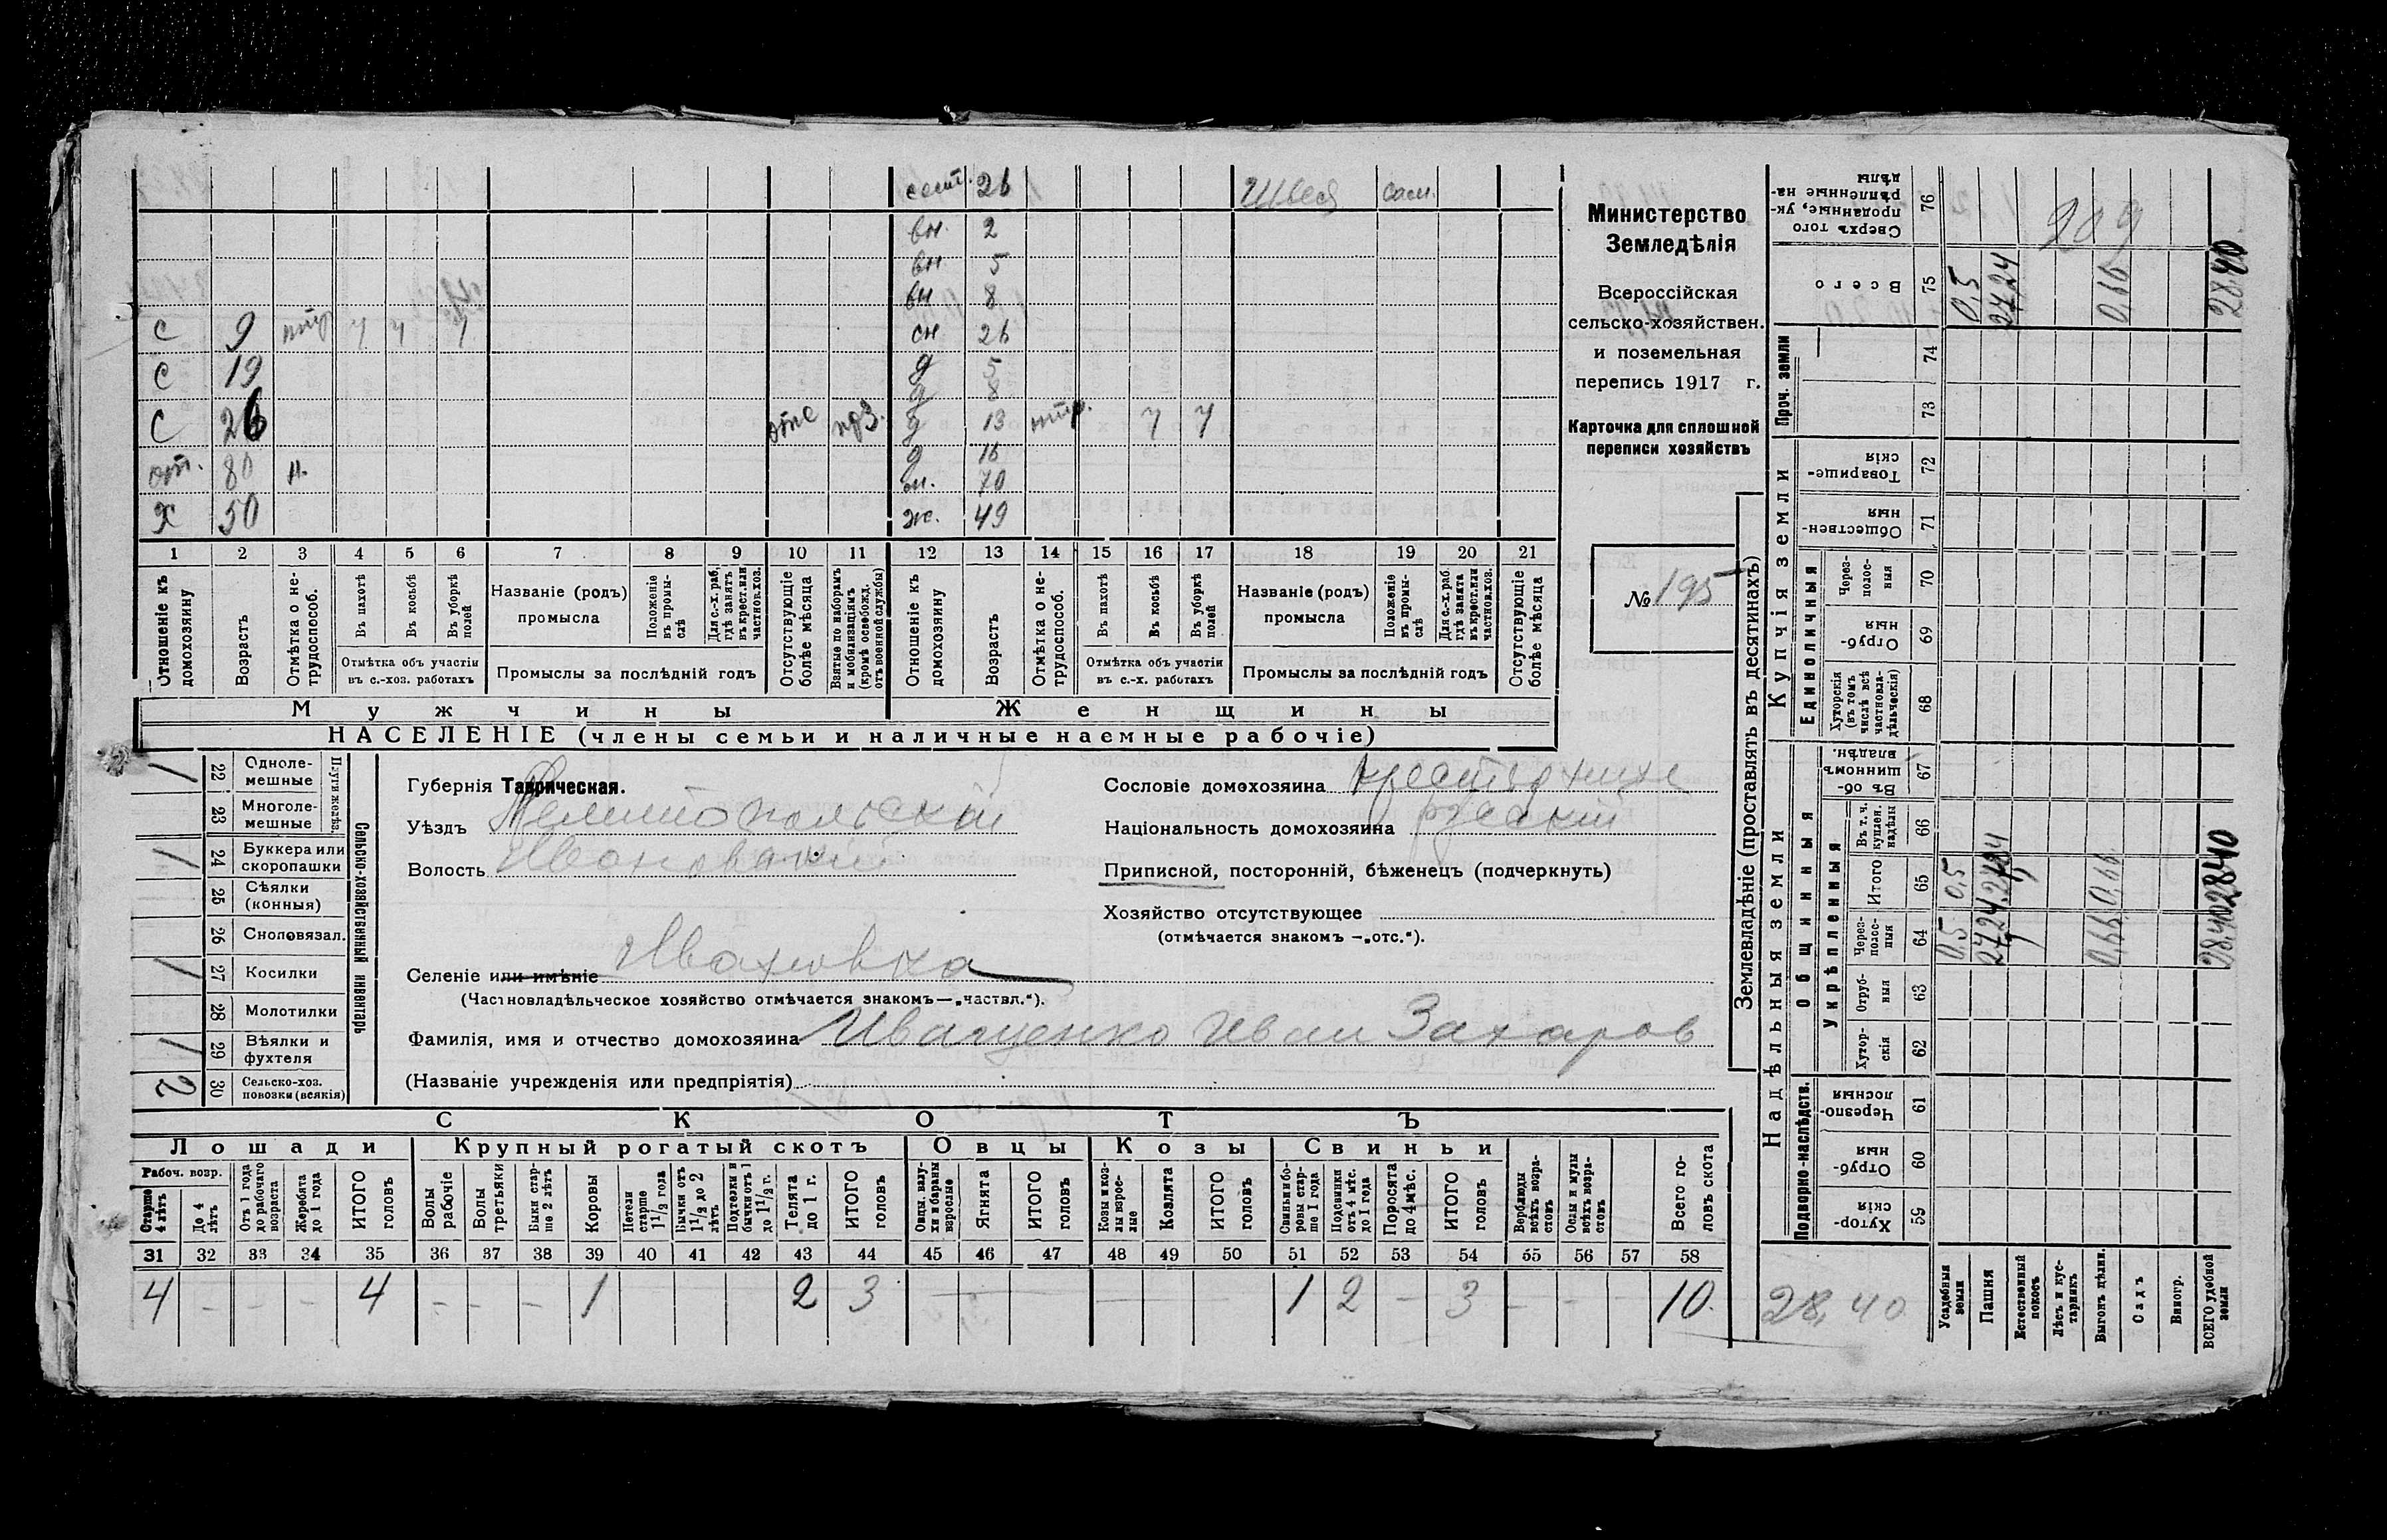 сест. 26 Швея сам.
вн. 2
вн 5
вн 8
С 9 сн 26
С 19 д 5
д 8
С 26 отс д 13 7 7
д 16
от. 80 н. м. 70
Х 50 ж. 49
1 2 3 4 5 6 7 8 9 10 11 12 13 14 15 16 17 18 19 20 21
Отношеніе къ домохозяину
Возрастъ
Отмѣтка о не-трудоспособ.
Въ пахотѣ
Въ косьбѣ
Въ уборкѣ полей
Отмѣтка объ участіи
въ с.-хоз. работахъ
Названіе (родъ)
промысла
Положеніе въ промы-слѣ
Для с.-х. раб. гдѣ занятъ въ крест. или частнов. хоз.
Промыслы за послѣдній годъ
Отсутствующіе болѣе мѣсяца
Взятые по наборамъ и мобилизаціямъ (кромѣ освобожд. отъ военной службы)
Отношеніе къ домохозяину
Возрастъ
Отмѣтка о не-трудоспособ.
Въ пахотѣ
Въ косьбѣ
Въ уборкѣ полей
Отмѣтка объ участіи
въ с.-х. работахъ
Названіе (родъ)
промысла
Положеніе въ промы-слѣ
Для с.-х. раб. гдѣ занята въ крест. или частнов. хоз.
Промыслы за послѣдній годъ
Отсутствующіе болѣе мѣсяца
Мужчины Женщины
НАСЕЛЕНІЕ (члены семьи и наличные наемные рабочіе)
Министерство
Земледѣлія
Всероссійская
сельско-хозяйствен.
и поземельная
перепись 1917 г.
Карточка для сплошной
переписи хозяйствъ
№ 195
Сельско-хозяйственный инвентарь
Плуги желѣз.
22 Одноле-мешные 1
23 Многоле-мешные
24 Буккера или скоропашки 1
25 Сѣялки (конныя)
26 Сноповязал.
27 Косилки 1
28 Молотилки
29 Вѣялки и фухтеля 1
30 Сельско-хоз. повозки (всякія) 2
Губернія Таврическая.
Уѣздъ Мелитопольскій
Волость Ивановская
Селеніе или имѣніе Ивановка
(Частновладѣльческое хозяйство отмѣчается знакомъ—„частвл.“).
Фамилія, имя и отчество домохозяина Иващенко Иван Захаров
(Названіе учрежденія или предпріятія)
Сословіе домохозяина
Національность домохозяина русскій
Приписной, посторонній, бѣженецъ (подчеркнуть)
Хозяйство отсутствующее
(отмѣчается знакомъ —„отс.“).
СКОТЪ
Лошади Крупный рогатый скотъ Овцы Козы Свиньи
Рабоч. возр.
Старше 4 лѣтъ
До 4 лѣтъ
Отъ 1 года до рабочаго возраста
Жеребята до 1 года
ИТОГО головъ
Волы рабочіе
Волы третьяки
Быки стар-ше 2 лѣтъ
Коровы
Нетели старше 1½ года
Бычки отъ 1½ до 2 лѣтъ
Подтелки и бычки отъ 1 до 1½ г.
Телята до 1 г.
ИТОГО головъ
Овцы, валу-хи и бараны взрослые
Ягнята
ИТОГО головъ
Козы и коз-лы взрос-лые
Козлята
ИТОГО головъ
Свиньи и бо-ровы стар-ше 1 года
Подсвинки отъ 4 мѣс. до 1 года
Поросята до 4 мѣс.
ИТОГО головъ
Верблюды всѣхъ возра-стовъ
Ослы и мулы всѣхъ возра-стовъ
Всего го-ловъ скота
31 32 33 34 35 36 37 38 39 40 41 42 43 44 45 46 47 48 49 50 51 52 53 54 55 56 57 58
4 - - - 4 - - - 1 2 3 — — - - 1 2 - 3 - - - 10.
Землевладѣніе (проставлять въ десятинахъ)
Купчія земли
Надѣльныя земли
Проч. земли
Единоличныя
Общинныя
Укрѣпленныя
Подворно-наслѣдств.
Сверхъ того проданные, ук-рѣпленные на-дѣлы 76 209
Всего 75 0,5 27,24 0,66 28,40
74
73
Товарище-скія 72
Обществен-ныя 71
Через-полос-ныя 70
Отруб-ныя 69
Хуторскія (въ томъ числѣ всѣ частновла-дѣльческія) 68
Въ об-щинномъ владѣн. 67
Въ т. ч. куплен. надѣлы 66
Итого 65 0,5 27,24 0,66 28,40
Через-полос-ныя 64 0,5 27,24 0,66 28,40
Отруб-ныя 63
Хутор-скія 62
Черезпо-лосныя 61
Отруб-ныя 60
Хутор-скія 59
28,40
Усадебныя земли
Пашня
Естественный покосъ
Лѣсъ и кус-тарникъ
Выгонъ цѣлин.
Садъ
Виногр.
ВСЕГО удобной земли